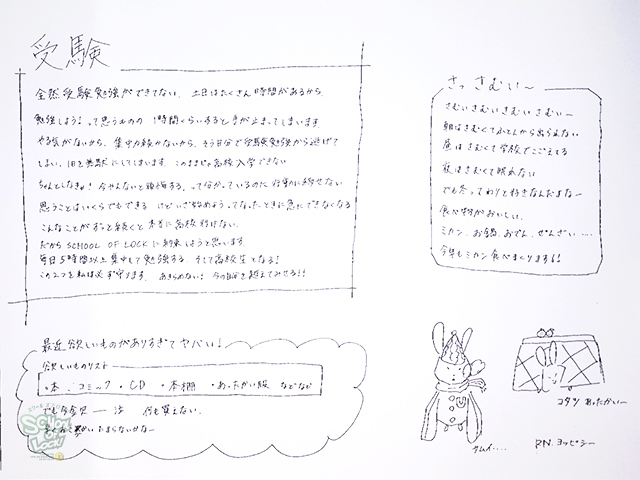 受験
全然受験勉強ができてない。土日はたくさん時間があるから、
勉強しよう!って思うものの 1時間くらいすると手が止まってしまいます。
やる気がないから、集中力続かないから、そう自分で受験勉強から逃げて
しまい、1日を無駄にしてしまいます。このままじゃ高校入学できない
ちゃんとしなきゃ!今やんないと後悔する。って分かっているのに行動に移せない
思うことはいくらでもできる けどいざ始めようってなったときに急にできなくなる
こんなことがずっと続くと本当に高校行けない。
だから SCHOOL OF LOCK に約束しようと思います。
毎日5時間以上集中して勉強する。そして高校生となる!
この2つを私は必ず守ります。あきらめない!今の自分を超えてみせる!!
さっさむい〜
さむいさむいさむいさむい〜
朝はさむくてふとんから出られない
昼はさむくて学校でこごえてる
夜はさむくて眠れない
でも冬ってわりと好きなんだよなー
食べ物がおいしい。
ミカン、お鍋、おでん、ぜんざい....
今年もミカン食べまくります!!
最近欲しいものがありすぎてヤバい!
欲しいものリスト
・本 ・コミック ・CD ・本棚 ・あったかい服 などなど
でも今金欠 ― 何も買えない。
たまらないかなー
サムイ....
コタツ あったかい〜
RN.ヨッピシー
SCHOOL OF LOCK!